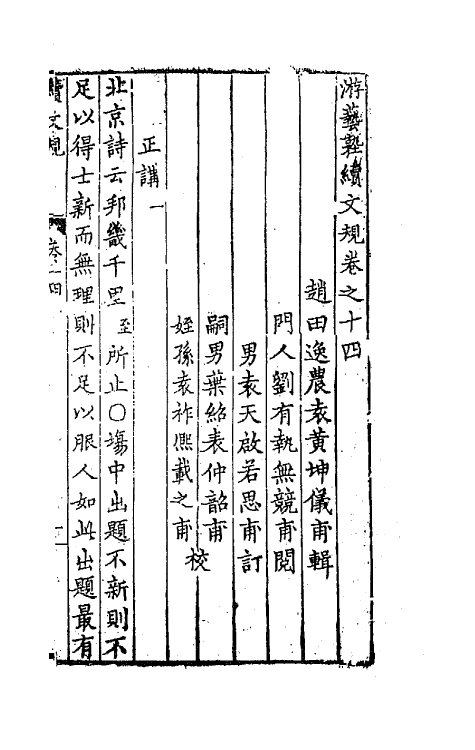 游藝塾續文規卷之十四
趙田逸農袁黃坤儀甫輯
門人劉有執無競甫閱
男袁天啟若思甫訂
嗣男葉紹袁仲韶甫
姪孫袁祚熈載之甫
校
正講一
北京詩云邦畿千里至所止○塲中出題不新則不
足以得士新而無理則不足以服人如此出題最有
續文規 卷十四 一